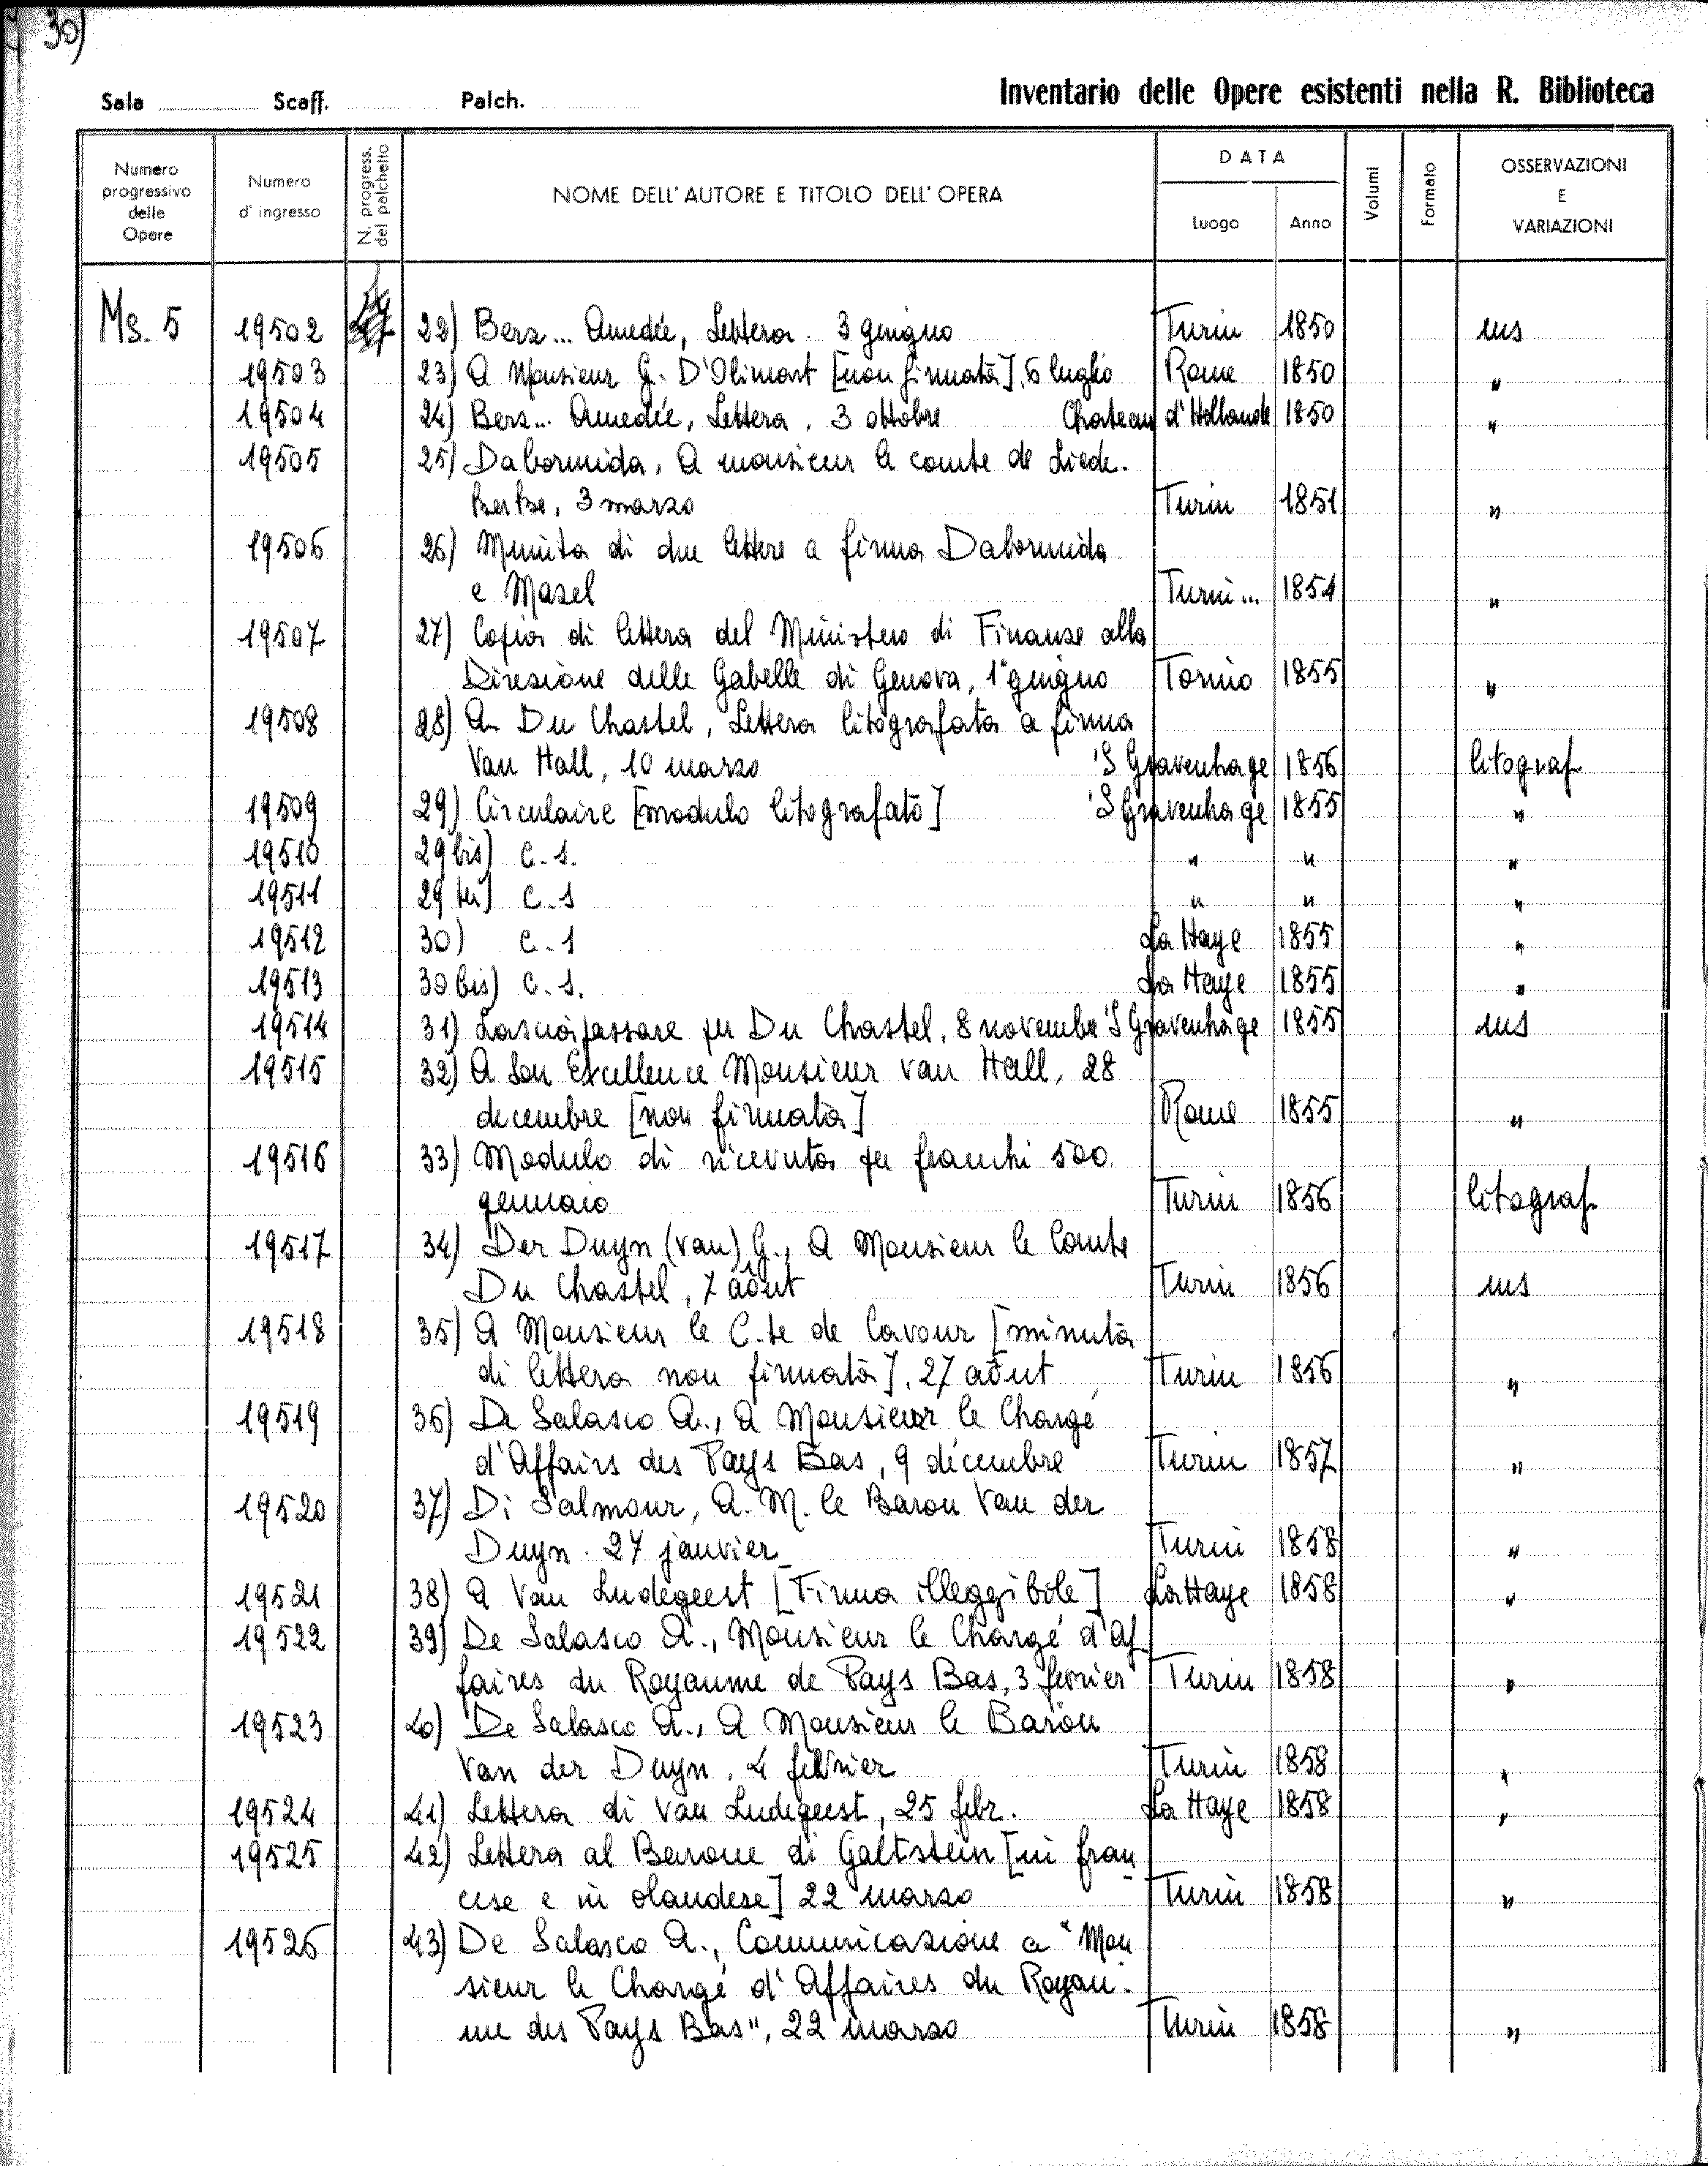 30)
Sala Scaff. Palch. Inventario delle Opere esistenti nella R. Biblioteca
Numero progressivo delle Opere
Numero d'ingresso
N. progress. del palchetto
NOME DELL'AUTORE E TITOLO DELL'OPERA
DATA
Luogo Anno
Volumi
Formato
OSSERVAZIONI E VARIAZIONI
Ms. 5 19502 22) Berz... Amedée, Lettera. 3 giugno Turin 1850 ms
19503 23) A Monsieur G. D'Olimart [non firmata], 6 luglio Rome 1850 "
19504 24) Berz... Amedée, Lettera, 3 ottobre Chateau d'Hollande 1850 "
19505 25) Dabormida, A monsieur le comte de Liede-
Kerke, 3 marzo Turin 1851 "
19506 26) Minuta di due lettere a firma Dabormida
e Masel Turin... 1854 "
19507 27) Copia di lettera del Ministero di Finanze alla
Direzione delle Gabelle di Genova, 1° giugno Torino 1855 "
19508 28) A Du Chastel, Lettera litografata a firma
Van Hall, 10 marzo 'S Gravenhage 1856 litograf.
19509 29) Circulaire [modulo litografato] 'S Gravenhage 1855 "
19510 29 bis) c.s. " " "
19511 29 ter) c.s " " "
19512 30) c.s La Haye 1855 "
19513 30 bis) c.s. La Haye 1855 "
19514 31) Lasciapassare per Du Chastel, 8 novembre 'S Gravenhage 1855 ms
19515 32) A Son Excellence Monsieur van Hall, 28
decembre [non firmata] Rome 1855 "
19516 33) Modulo di ricevuta per franchi 500.
gennaio Turin 1856 litograf.
19517 34) Der Duyn (van) G., A Monsieur le Comte
Du Chastel, 7 août Turin 1856 ms
19518 35) A Monsieur le C.te de Cavour [minuta
di lettera non firmata], 27 août Turin 1856 "
19519 36) De Salasco A., A Monsieur le Chargé
d'Affairs des Pays Bas, 9 décembre Turin 1857 "
19520 37) Di Salmour, A. M. le Baron Van der
Duyn. 27 janvier Turin 1858 "
19521 38) A Van Ludegeest [Firma illeggibile] La Haye 1858 "
19522 39) De Salasco A., Monsieur le Chargé d'Af
faires du Royaume de Pays Bas, 3 février Turin 1858 "
19523 40) De Salasco A., A Monsieur le Baron
Van der Duyn, 4 février Turin 1858 "
19524 41) Lettera di Van Ludegeest, 25 febr. La Haye 1858 "
19525 42) Lettera al Barone di Galtstein [in fran
cese e in olandese] 22 marzo Turin 1858 "
19526 43) De Salasco A., Comunicazione a "Mon
sieur le Chargé d'Affaires du Royau-
me des Pays Bas", 22 marzo Turin 1858 "